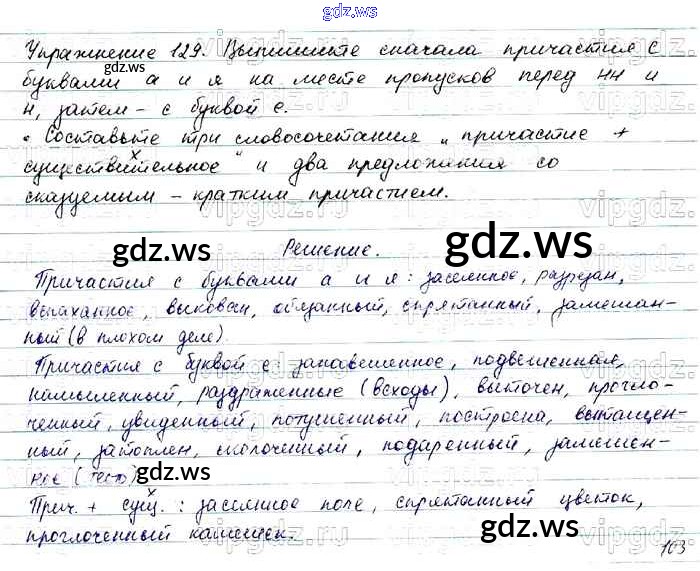 gdz.ws
Упражнение 129. Выпишите сначала причастия с
буквами а и я на месте пропусков перед нн и
н, затем – с буквой е.
• Составьте три словосочетания „причастие +
существительное" и два предложения со
сказуемым – кратким причастием.
Решение.
Причастия с буквами а и я: засеянное, разрезан,
вспаханное, выкован, обязанный, спрятанный, замешан-
ный (в плохом деле).
Причастия с буквой е: занавешенное, подвешенная,
намыленный, раздраженные (всходы), выточен, прогло-
ченный, увиденный, потушенный, построена, вытащен-
ный, затоплен, сколоченный, подпиренный, замешен-
ное (тесто)
Прич. + сущ. : засеянное поле, спрятанный цветок,
проглоченный камешек.
103
gdz.ws
gdz.ws
gdz.ws
gdz.ws
gdz.ws
gdz.ws
vipgdz.ws